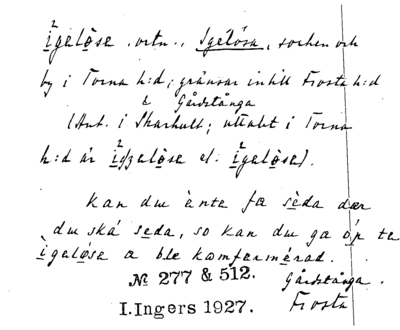 ìgelösa, ortn., Igelösa, socken och
by i Torna h:d; gränsar intill Frosta h:d
& Gårdstånga
(Ant. i Skarhult; uttalet i Torna
h:d är ìgelösa el. ìgelösa).
kan du ènte fæ sèda dær
du ská seda, so kan du ga óp te
ìgelósa a ble kamfermérad.
№ 277 & 512. Gårdstånga.
I. Ingers 1927. Frosta